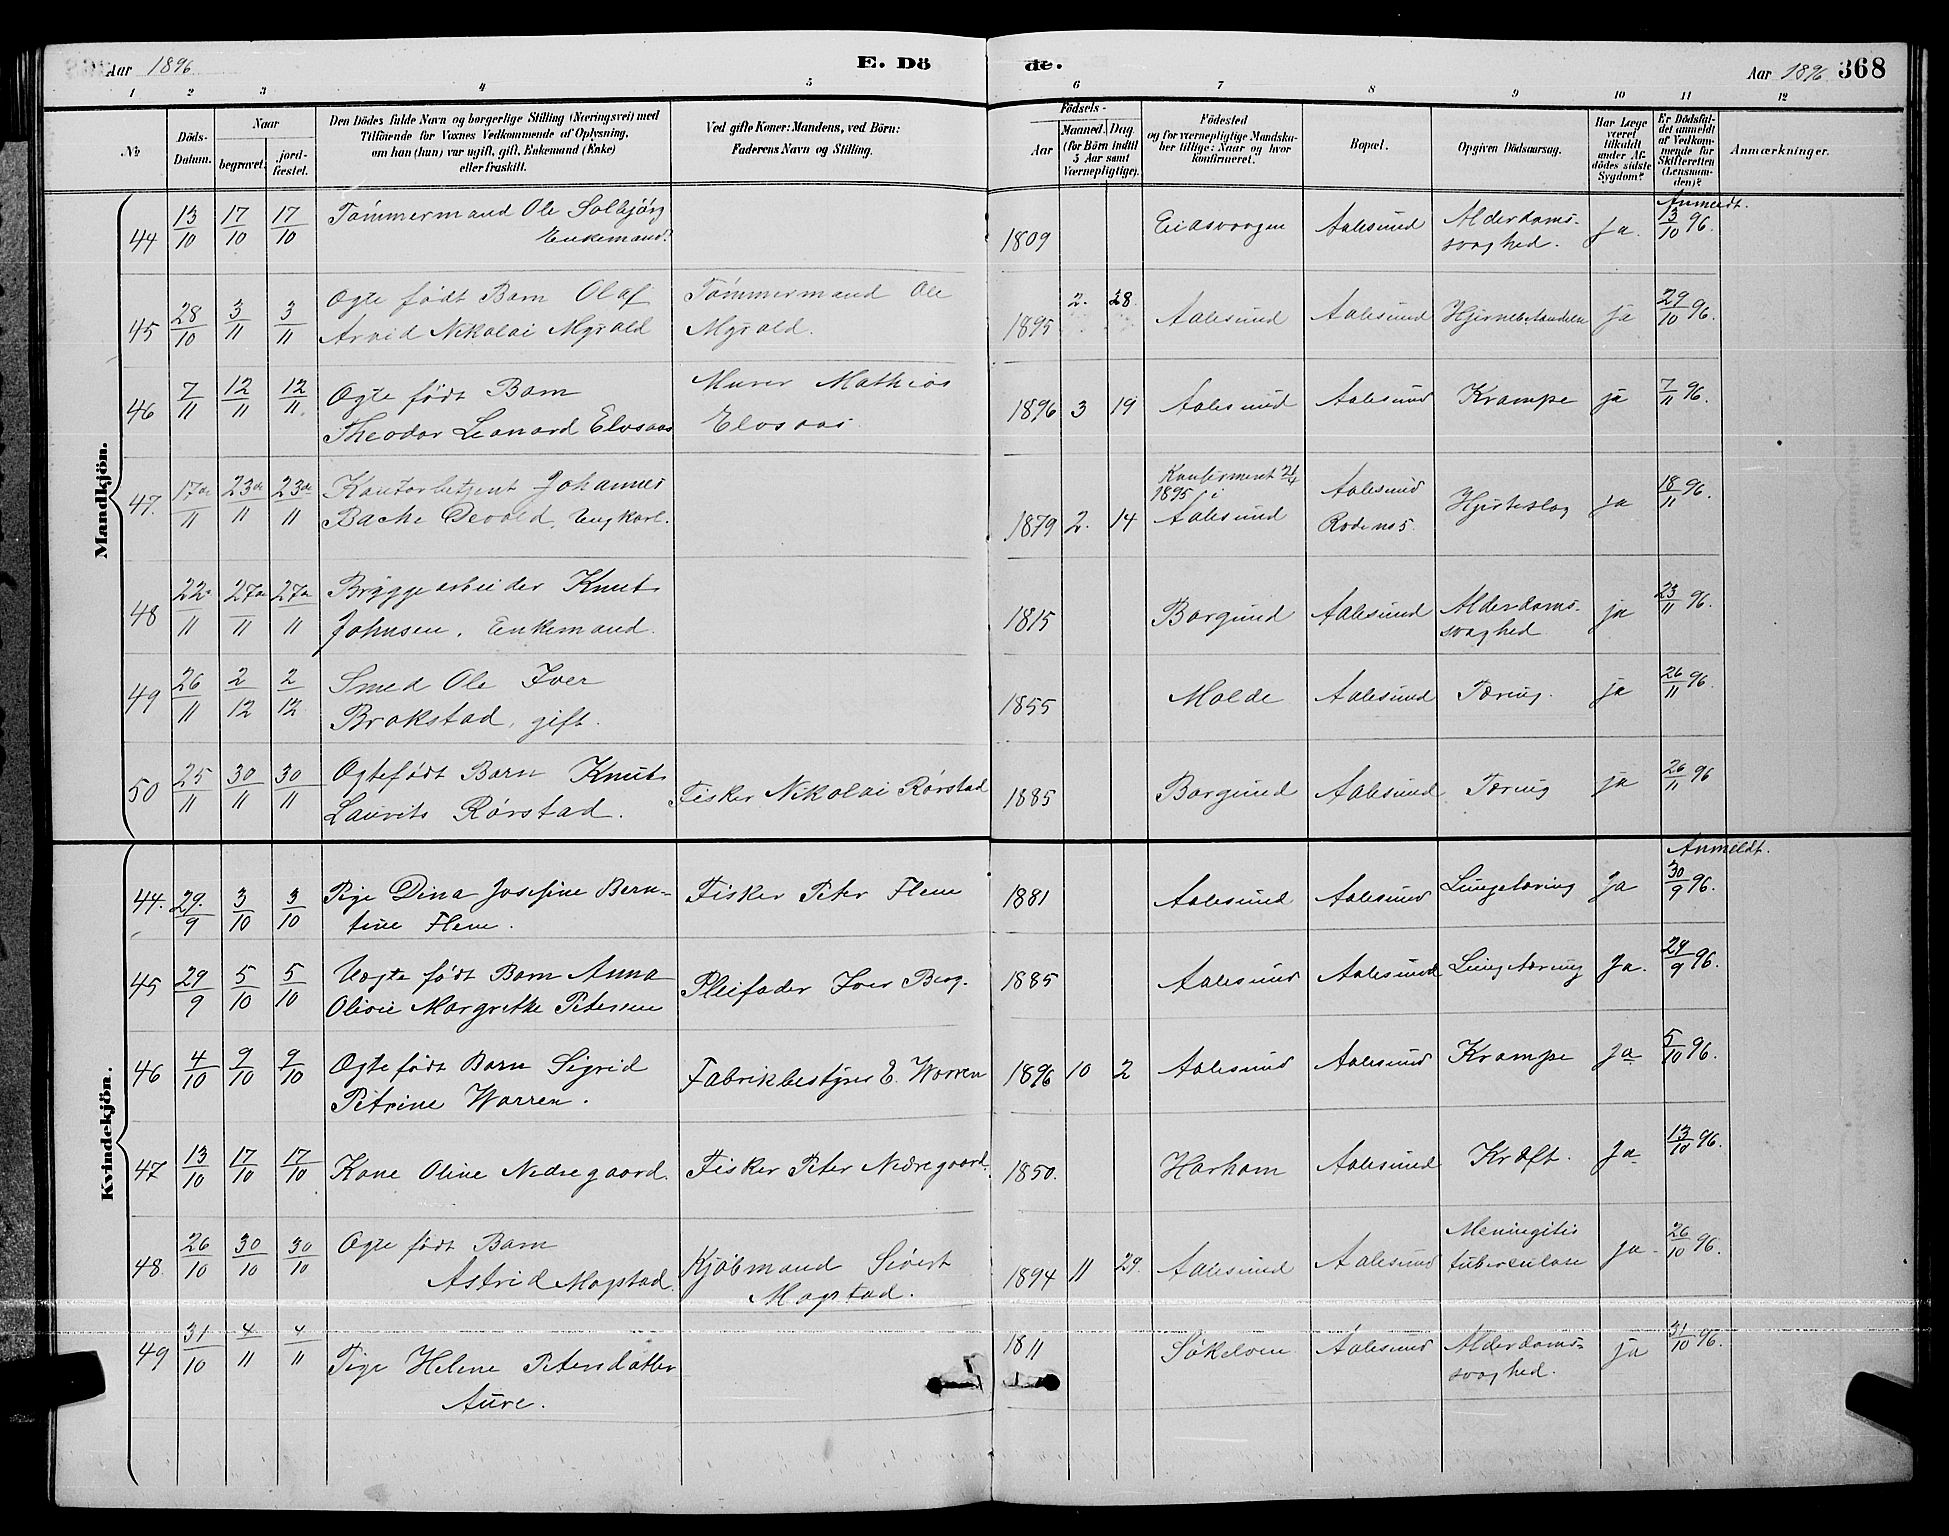 Aar 1896
E. Dö
de.
Aar 1896 368
1 2 3 4 5 6 7 8 9 10 11 12
№
Döds-
Datum.
Naar
begravet.
jord-
fæstet.
Den Dödes fulde Navn og borgerlige Stilling (Næringsvei) med
Tilföiende for Voxnes Vedkommende af Oplysning,
om han (hun) var ugift, gift, Enkemand (Enke)
eller fraskilt.
Ved gifte Koner: Mandens, ved Börn:
Faderens Navn og Stilling.
Födsels-
Aar
Maaned. Dag
(for Börn indtil
5 Aar samt
Værnepligtige).
Födested
og for værnepligtige Mandska-
ber tillige: Naar og hvor
konfirmeret.
Bopæl.
Opgiven Dödsaarsag.
Har Læge
været
tilkaldt
under Af-
dödes sidste
Sygdom?
Er Dödsfal-
det anmeldt
af Vedkom-
mende for
Skifteretten
(Lensman-
den)?
Anmærkninger.
Mandkjön.
Anmeldt.
44 13/10 17/10 17/10 Tømmermand Ole Solbjørg
Enkemand. 1809 Eidsvaagen Aalesund Alderdoms-
svaghed. Ja. 13/10 96.
45 28/10 3/11 3/11 Ægte født Barn Olaf
Arvid Nikolai Myrold Tømmermand Ole
Myrold. 1895 2. 28. Aalesund Aalesund ja 29/10 96.
46 7/11 12/11 12/11 Ægte født Barn
Theodor Leonard Elvsaas Murer Mathias
Elvsaas. 1896 3 19 Aalesund Aalesund Krampe ja 7/11 96.
47. 17de/11 23de/11 23de/11 Kontorbetjent Johannes
Bache Devold, Ungkarl. 1879 2. 14 Konfirmeret 21/4
1895 i
Aalesund Aalesund
Rode no 5. Hjerteslag ja 18/11 96.
48 22/11 27/11 27/11 Bryggearbeider Knut
Johnsen. Enkemand. 1815 Borgund Aalesund Alderdoms-
svaghed ja 23/11 96.
49 26/11 2/12 2/12 Smed Ole Iver
Brakstad, gift. 1855 Molde Aalesund Tæring. ja 26/11 96.
50 25/11 30/11 30/11 Ægtefødt Barn Knut
Laurits Rørstad. Fisker Nikolai Rørstad 1885 Borgund Aalesund Tæring ja 26/11 96
Kvindekjön.
Anmeldt.
44. 29./9 3/10 3/10 Pige Dina Josefine Bern-
tine Flem. Fisker Peter Flem 1881 Aalesund Aalesund Lungetæring Ja 30/9 96.
45 29/9 5/10 5/10 Uægte født Barn Anna
Olivie Margrethe Petersen Pleifader Iver Berg. 1885 Aalesund Aalesund Lungetæring Ja. 29/9 96.
46 4/10 9/10 9/10 Ægte født Barn Sigrid
Petrine Warren. Fabrikbestyrer E. Warren 1896 10 2 Aalesund Aalesund Krampe Ja 5/10 96.
47 13/10 17/10 17/10 Kone Oline Nedregaard. Fisker Peter Nedregaard. 1850. Harham Aalesund Kræft. Ja 13/10 96.
48. 26/10 30/10 30/10 Ægte født Barn
Astrid Magstad. Kjøbmand Sivert
Magstad. 1894 11 29. Aalesund Aalesund Meningitis
tuberculose ja 26/10 96.
49 31/10 4/11 4/11 Pige Helene Petersdatter
Aure. 1811 Søkelven Aalesund Alderdoms-
svaghed. ja 31/10 96.